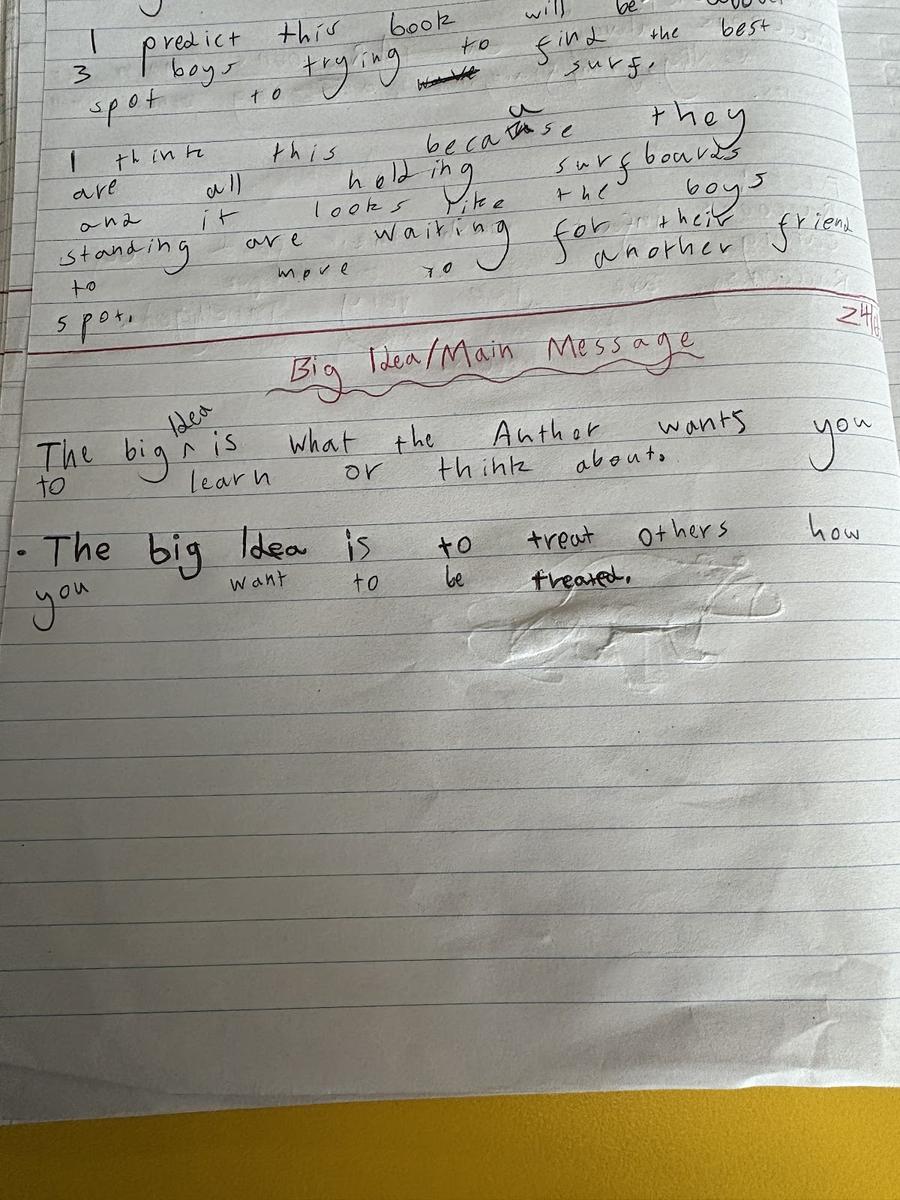 I predict this book will be about
3 boys trying to find the best
spot to surf.
I think this because they
are all holding surfboards
and it looks like the boys
standing are waiting for their friend
to move to another
spot.
24/
Big Idea/Main Message
The big Idea is what the Author wants you
to learn or think about.
• The big Idea is to treat others how
you want to be treated.